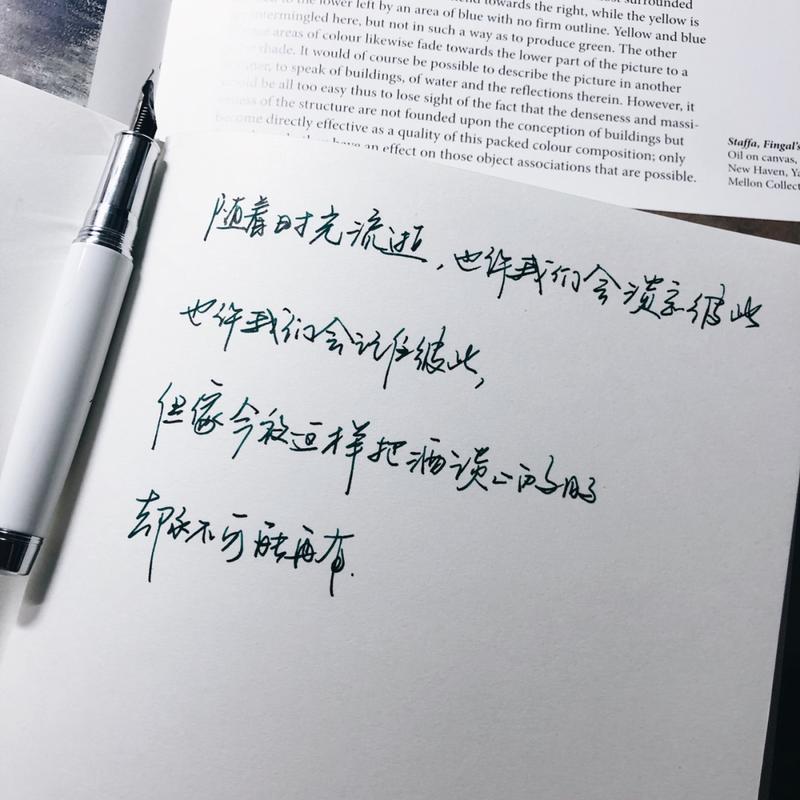 towards the right, while the yellow is
to the lower left by an area of blue with no firm outline. Yellow and blue
intermingled here, but not in such a way as to produce green. The other
areas of colour likewise fade towards the lower part of the picture to a
shade. It would of course be possible to describe the picture in another
to speak of buildings, of water and the reflections therein. However, it
be all too easy thus to lose sight of the fact that the denseness and massi-
of the structure are not founded upon the conception of buildings but
become directly effective as a quality of this packed colour composition; only
have an effect on those object associations that are possible.
Staffa, Fingal's
Oil on canvas,
New Haven, Ya
Mellon Collec
随着时光流逝,也许我们会彼此
也许我们会记住彼此,
但像今夜这样把酒
却永不可能再有.